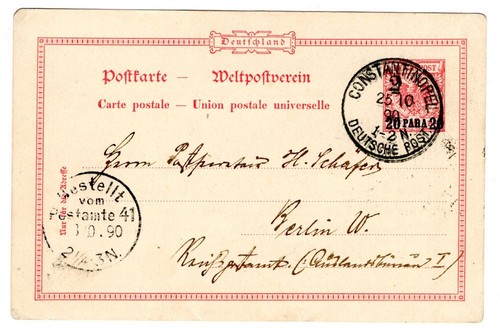 Deutschland
Postkarte – Weltpostverein
Carte postale – Union postale universelle
CONSTANTINOPEL
2
25 10
90
1-2 N.
DEUTSCHE POST
20 PARA 20
Herrn Postsecretär H. Schäfer
Berlin W.
Reichspostamt. (: Auslandsbüreau I)
Nur für die Adresse
Bestellt
vom
Postamte 41
10.90
2 3N.